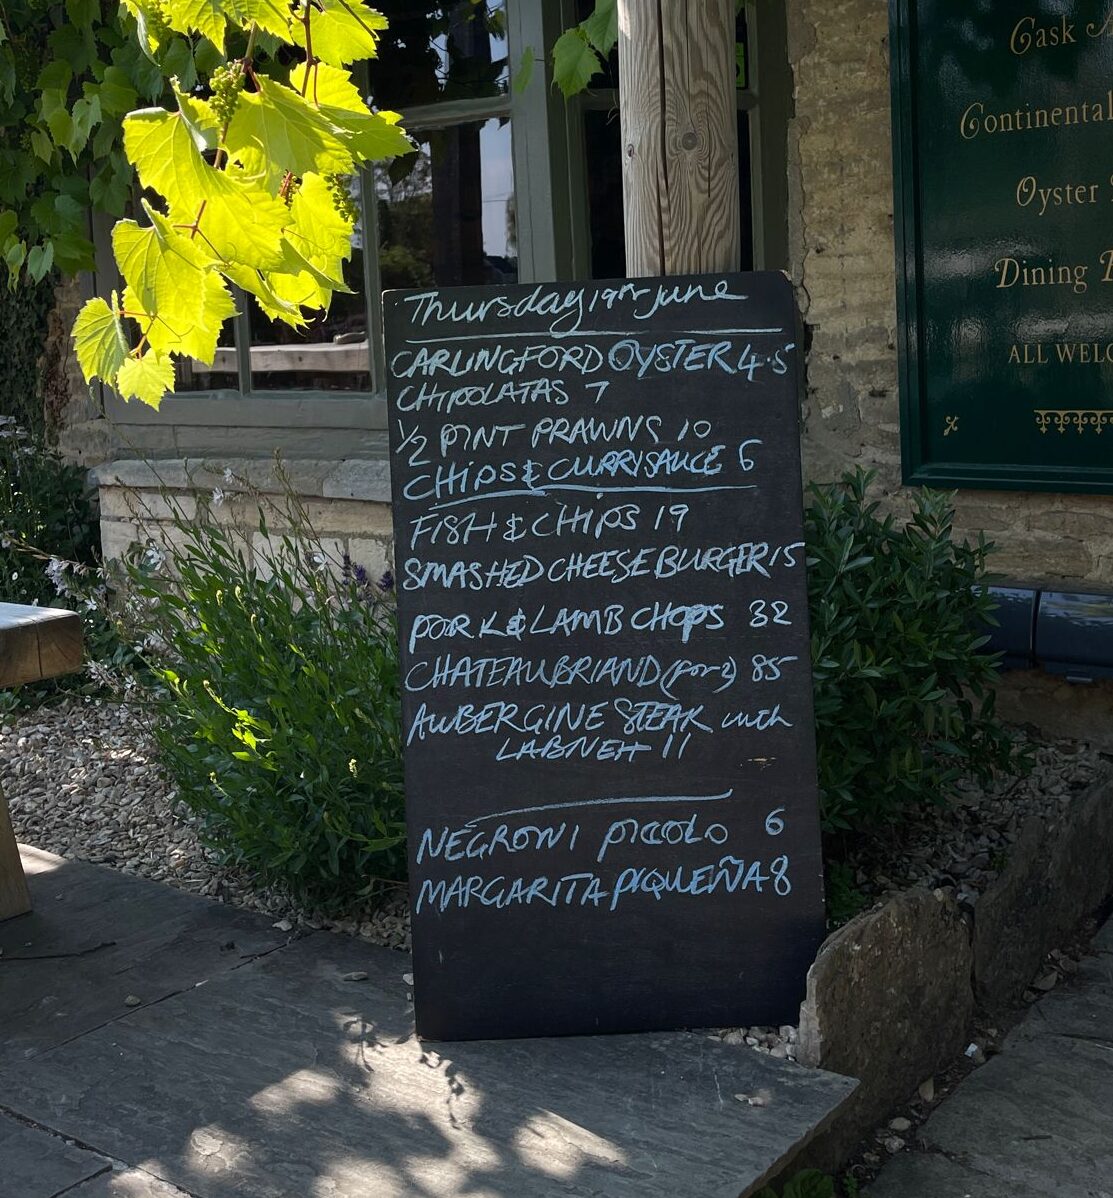 Thursday 19th June
CARLINGFORD OYSTER 4.5
CHIPOLATAS 7
1/2 PINT PRAWNS 10
CHIPS & CURRY SAUCE 6
FISH & CHIPS 19
SMASHED CHEESEBURGER 15
PORK & LAMB CHOPS 32
CHATEAUBRIAND (for 2) 85
AUBERGINE STEAK with
LABNEH 11
NEGRONI PICCOLO 6
MARGARITA PIQUEÑA 8
Cask
Continental
Oyster
Dining
ALL